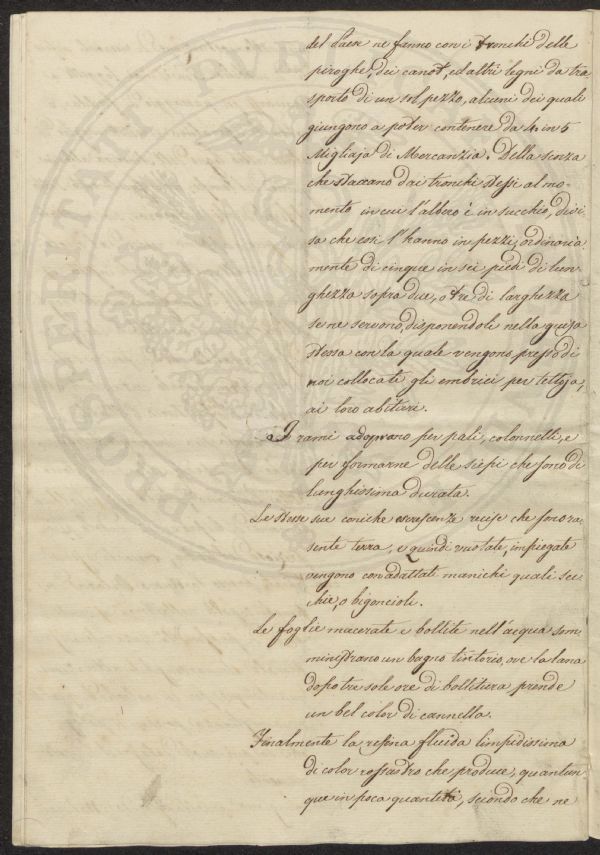 del Paese ne fanno con i tronchi delle
piroghe, dei canot, ed altri legni da tra
sporto di un sol pezzo, alcuni dei quali
giungono a poter contenere da 4. in 5
Migliaja di Mercanzia. Della scorza
che staccano dai tronchi stessi al mo-
mento in cui l'albero è in succhio, divi
sa che così l'hanno in pezzi, ordinaria
mente di cinque in sei piedi di lun
ghezza sopra due, o tre di larghezza
se ne servono, disponendoli nella guisa
stessa con la quale vengono presso di
noi collocati gli embrici per tettoja,
ai loro abituri.
I rami adoprano per pali, colonnelli, e
per formarne delle siepi che sono di
lunghissima durata.
Le stesse sue coniche escrescenze recise che sono ra-
sente terra, e quindi vuotate, impiegate
vengono con adattati manichi quali sec-
chie, o bigoncioli.
Le foglie macerate e bollite nell'acqua som
ministrano un bagno tintorio, ove la lana
dopo tre sole ore di bollitura prende
un bel color di cannella.
Finalmente la resina fluida limpidissima
di color rossastro che produce, quantun
que in poca quantità, secondo che ne
PROSPERITATI PVB